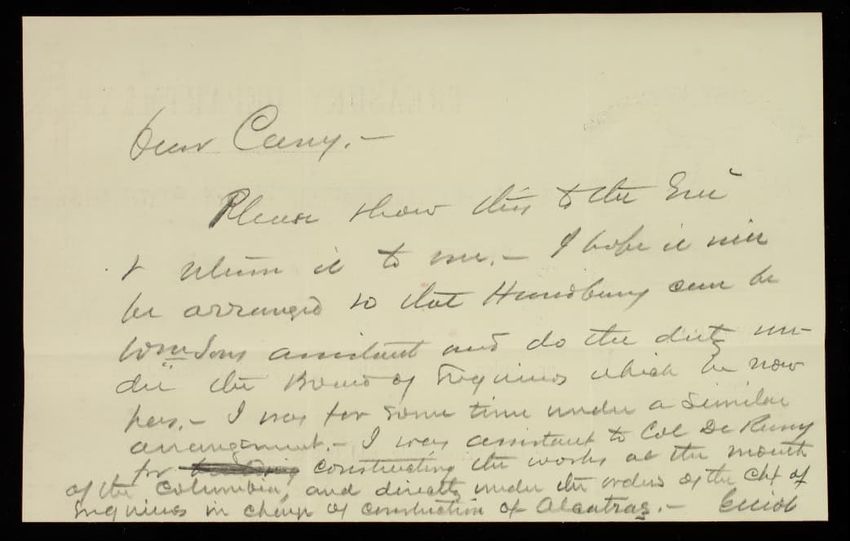 Dear Casey.-
Please show this to the Gen'l
& return it to me.- I hope it will
be arranged so that Handbury can be
assistant and do the duty un-
der the Board of Engineers which he now
has.- I was for some time under a similar
arrangement.- I was assistant to Col De Russy
for constructing the works at the mouth
of the Columbia, and directly under the orders of the Chf of
Engineers in charge of construction of Alcatraz.- Elliot